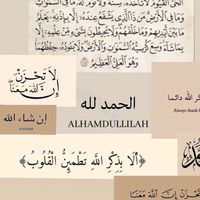 الْقَيُّومُ لَا تَأْخُذُهُ سِنَةٌ وَلَا نَوْمٌ لَّهُ مَا فِي السَّمَوَاتِ
وَمَا فِي الْأَرْضِ مَن ذَا الَّذِي يَشْفَعُ عِندَهُ إِلَّا بِإِذْنِهِ يَعْلَمُ
مَا بَيْنَ أَيْدِيهِمْ وَمَا خَلْفَهُمْ وَلَا يُحِيطُونَ بِشَيْءٍ مِّنْ عِلْمِهِ إِلَّا
بِمَا شَاءَ وَسِعَ كُرْسِيُّهُ السَّمَوَاتِ وَالْأَرْضَ وَلَا يَئُودُهُ حِفْظُهُمَا
وَهُوَ الْعَلِيُّ الْعَظِيمُ
لَا تَحْزَنْ
إِنَّ اللَّهَ مَعَنَا
ذكر الله دائما
Always thank
إن شاء الله
الحمد لله
ALHAMDULLILAH
﴿أَلَا بِذِكْرِ اللَّهِ تَطْمَئِنُّ الْقُلُوبُ﴾
تَحْزَنْ إِنَّ اللَّهَ مَعَنَا